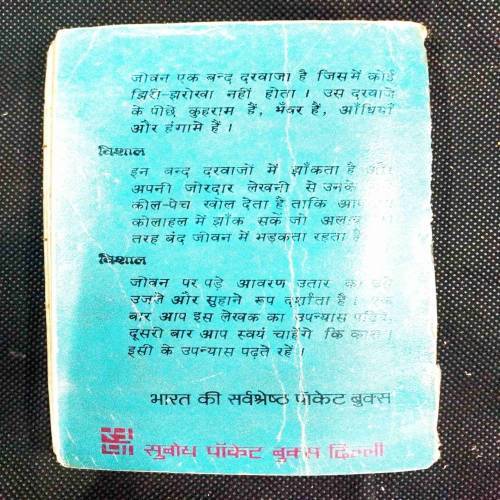 जीवन एक बन्द दरवाजा है जिसमें कोई
झिरी-झरोखा नहीं होता । उस दरवाजे
के पीछे कुहराम हैं, भँवर हैं, आँधियाँ
और हंगामे हैं ।
विशाल
इन बन्द दरवाजों में झाँकता है और
अपनी जोरदार लेखनी से उनके
कील-पेच खोल देता है ताकि आप
कोलाहल में झाँक सकें जो
तरह बंद जीवन में भड़कता रहता है
विशाल
जीवन पर पड़े आवरण उतार कर
उजले और सुहाने रूप दर्शाता है । एक
बार आप इस लेखक का उपन्यास पढ़िये,
दूसरी बार आप स्वयं चाहेंगे कि
इसी के उपन्यास पढ़ते रहें ।
भारत की सर्वश्रेष्ठ पॉकेट बुक्स
सुबोध पॉकेट बुक्स दिल्ली